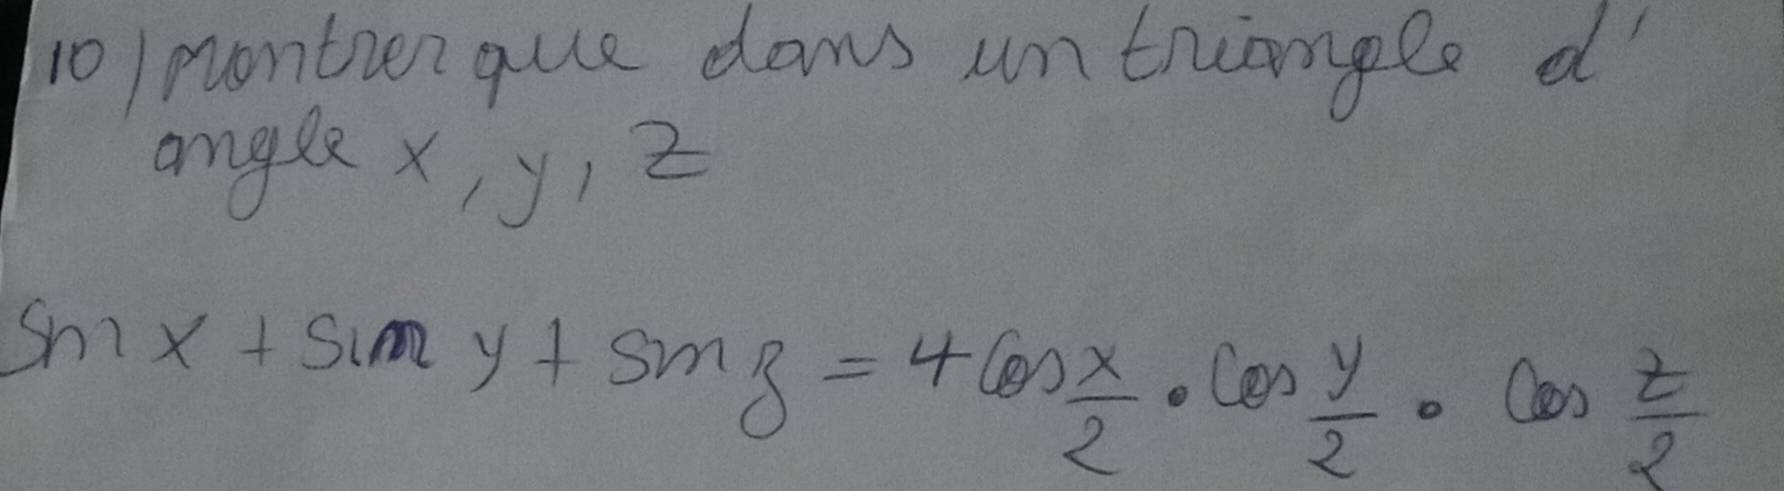 10) montrer que dans un triangle d'
angle x, y, z
Sin x + sin y + sin z = 4 cos x/2 • cos y/2 • cos z/2